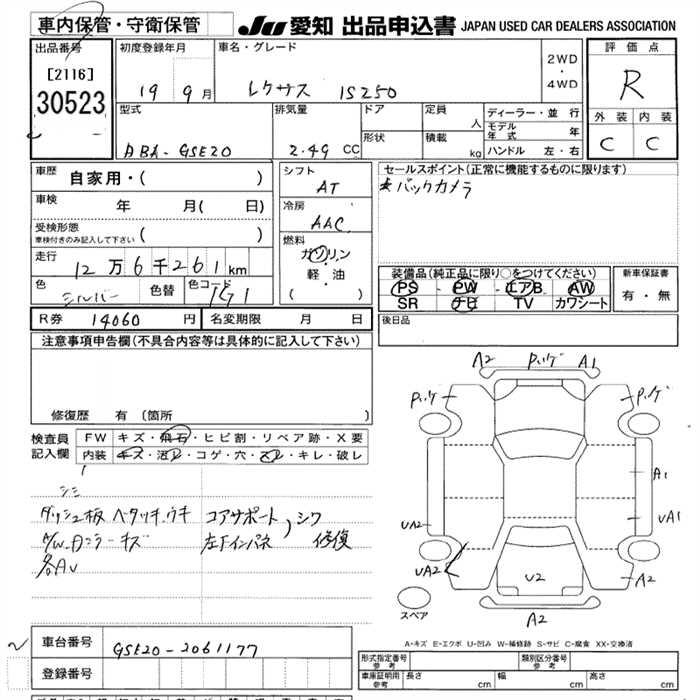 車内保管・守衛保管
JU 愛知 出品申込書 JAPAN USED CAR DEALERS ASSOCIATION
出品番号
[2116]
30523
初度登録年月
19 9月
車名・グレード
レクサス IS250
2WD
・
4WD
評価点
R
外装 内装
C C
型式
ABA-GSE20
排気量
2.49 CC
ドア
形状
定員
人
積載
kg
ディーラー・並行
モデル年式 年
ハンドル 左・右
車歴
自家用・( )
車検
年 月( 日)
受検形態
車検付きのみ記入して下さい
走行
12万6千261km
色
シルバー
色替
色コード
1G1
シフト
AT
冷房
AAC
燃料
ガソリン
・
軽・油
( )
セールスポイント(正常に機能するものに限ります)
バックカメラ
装備品(純正品に限り○をつけてください)
PS・PW・エアB・AW
SR ナビ TV カワシート
新車保証書
有・無
R券 14060 円
名変期限 月 日
後日品
注意事項申告欄(不具合内容等は具体的に記入して下さい)
修復歴 有(箇所 )
検査員
記入欄
FW キズ・飛石・ヒビ割・リペア跡・X要
内装 キズ・汚レ・コゲ・穴・スレ・キレ・破レ
シミ
ダッシュ板 ベタツキ、ウキ
コアサポート
シワ
左Fインパネ
修復
各AU
A2 P.ハゲ A1
P.ハゲ
P.ハゲ
A1
UA2
UA1
UA2
U2
A2
A2
スペア
A-キズ E-エクボ U-凹み W-補修跡 S-サビ C-腐食 XX-交換済
車台番号
GSE20-2061177
登録番号
形式指定番号
参考
類別区分番号
参考
車庫証明用
参考
長さ cm
幅 cm
高さ cm